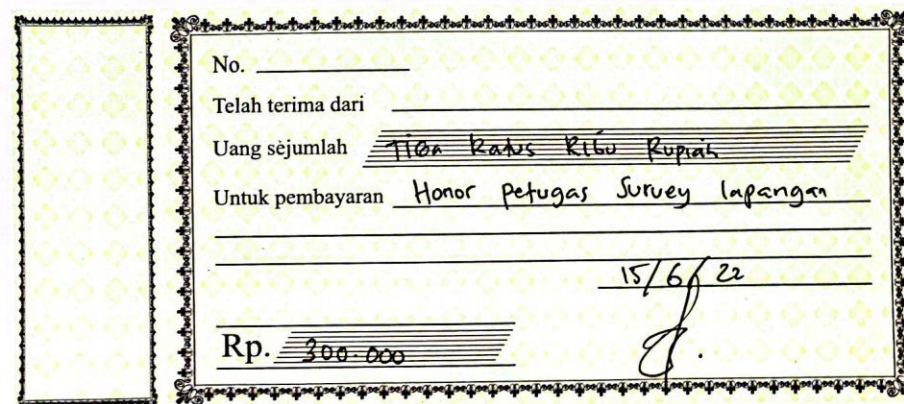 No.
Telah terima dari
Uang sejumlah Tiga Ratus Ribu Rupiah
Untuk pembayaran Honor petugas Survey lapangan
15/6/22
Rp. 300.000